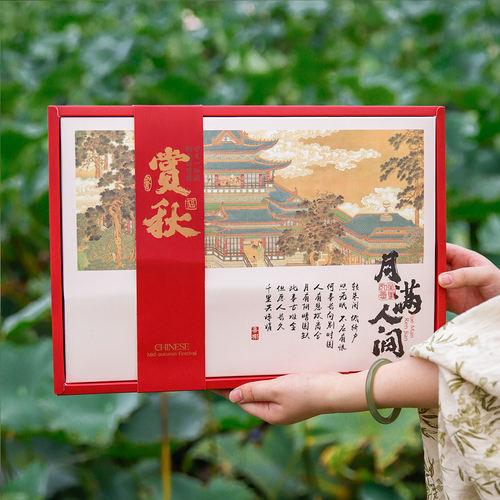 赏秋
CHINESE
Mid-autumn Festival
月满人间
转朱阁 低绮户
照无眠 不应有恨
何事长向别时圆
人有悲欢离合
月有阴晴圆缺
此事古难全
但愿人长久
千里共婵娟